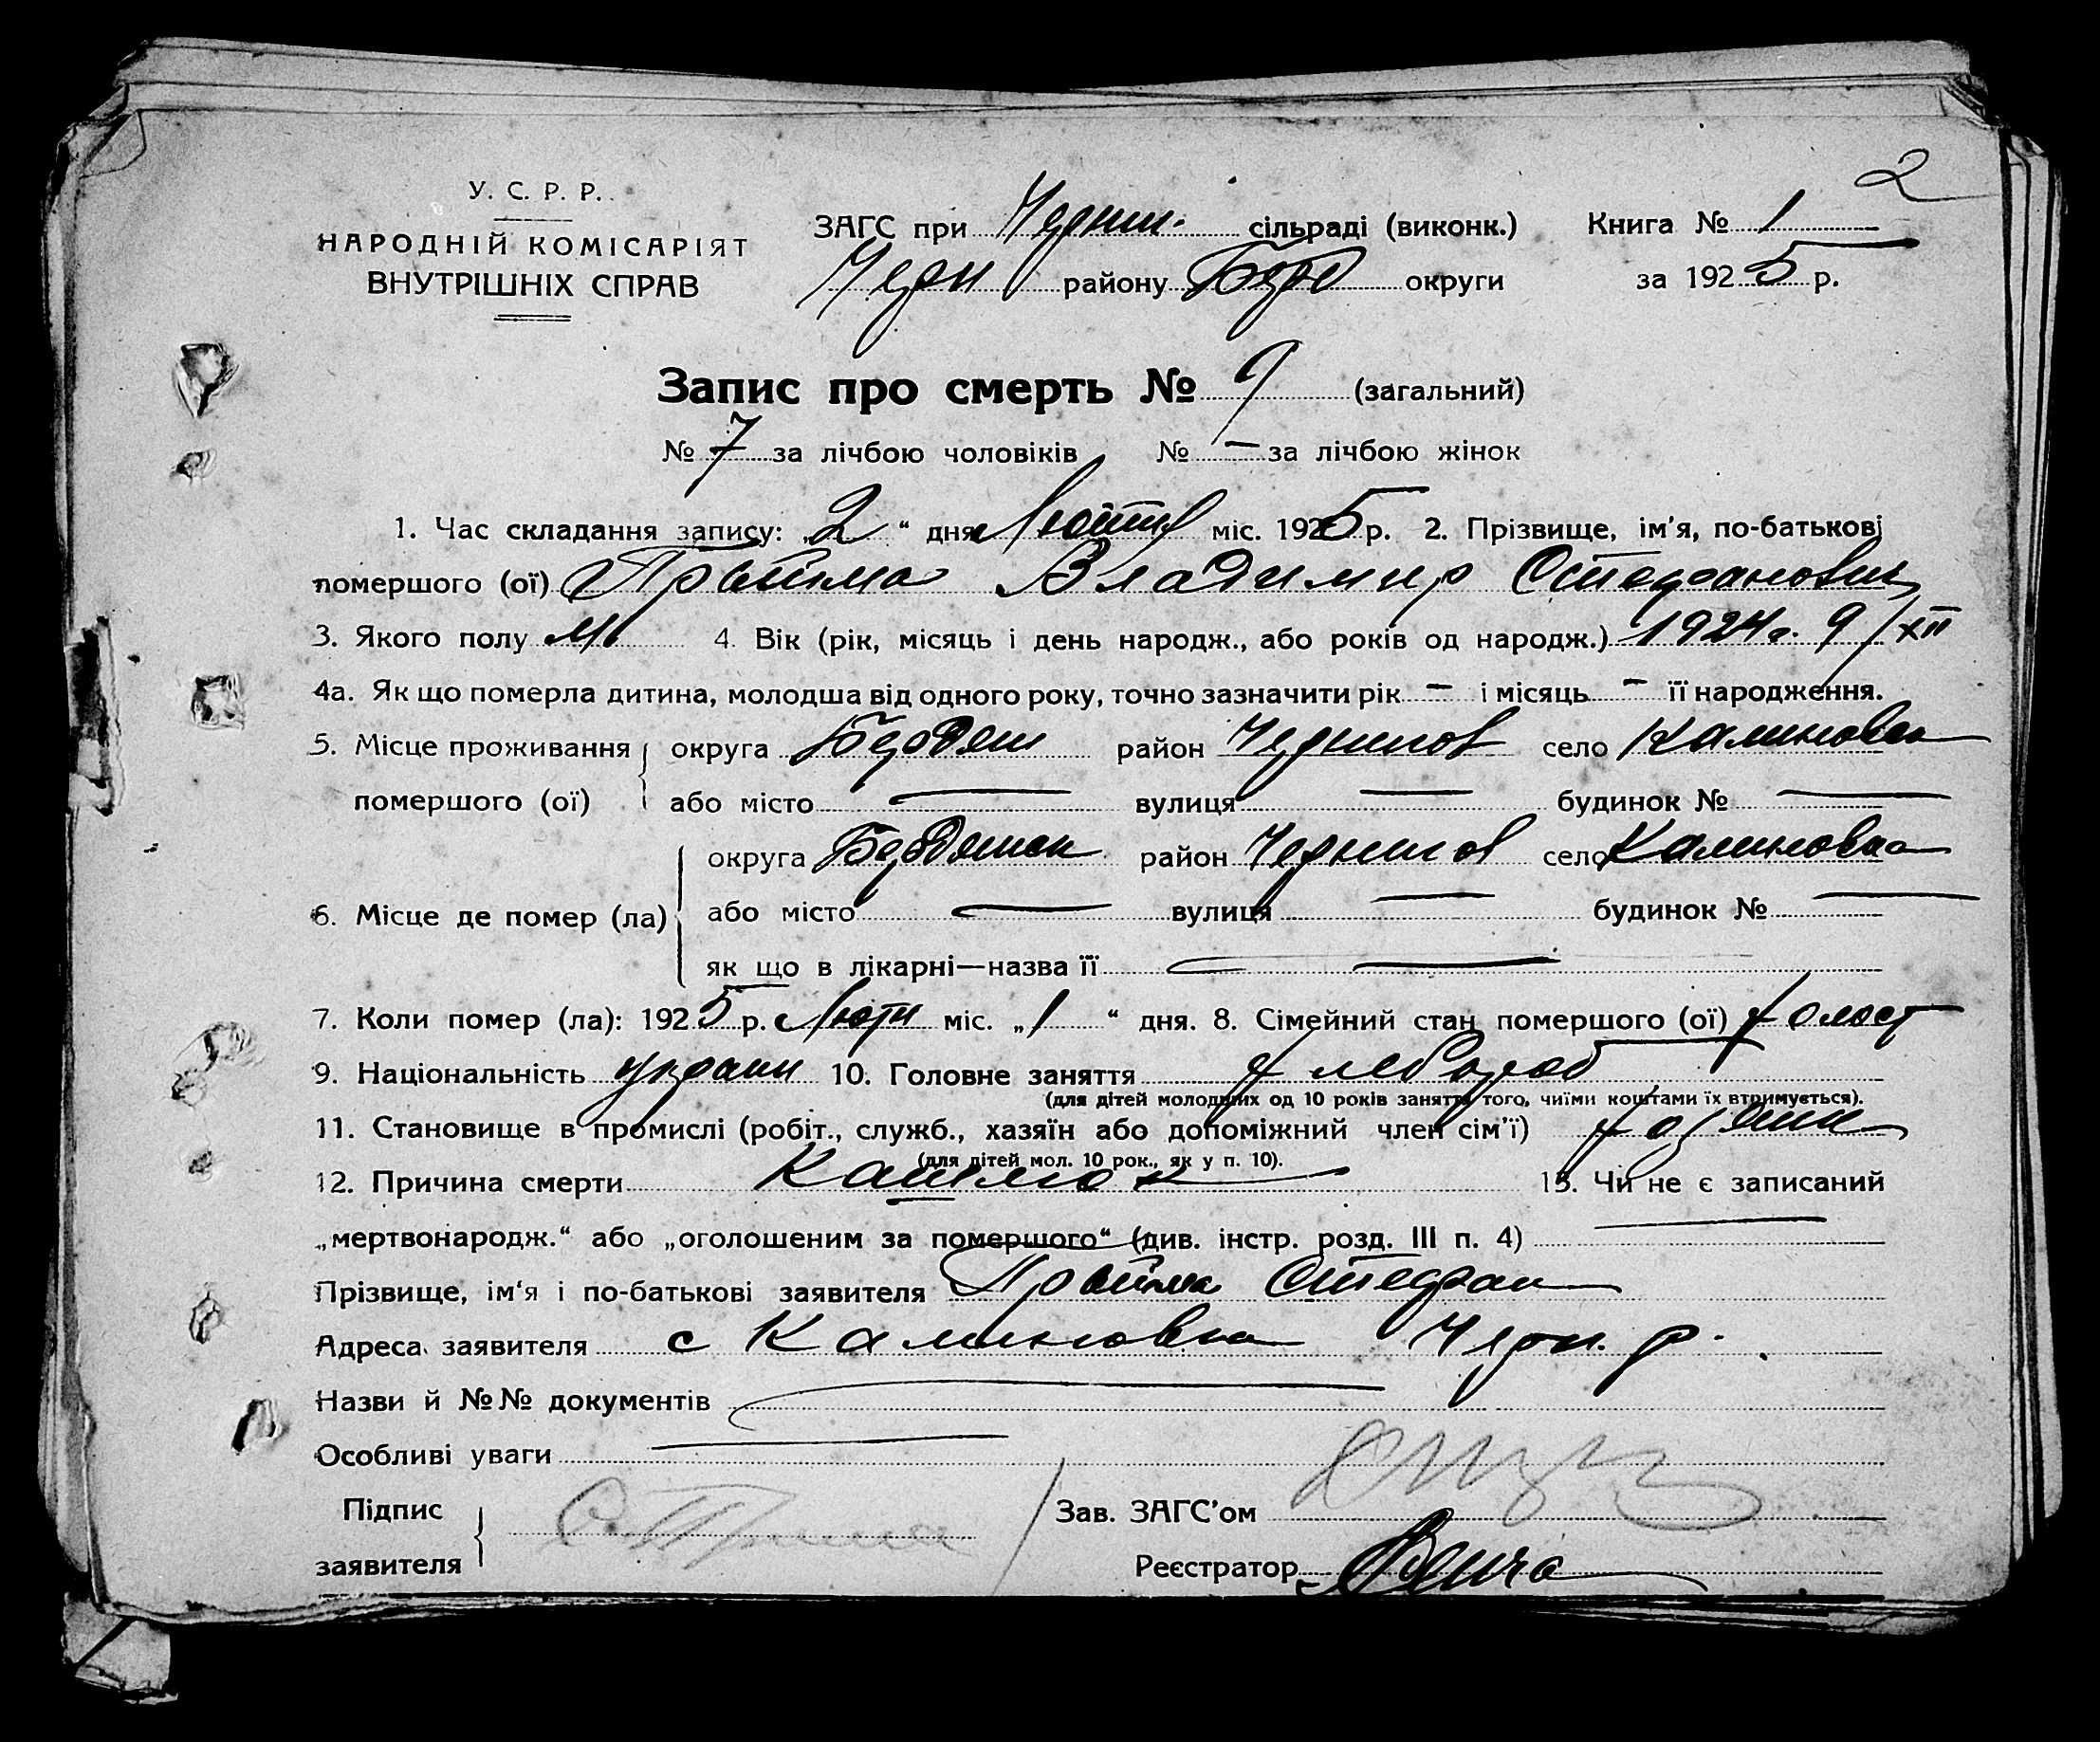 2
У. С. Р. Р.
НАРОДНІЙ КОМІСАРІЯТ
ВНУТРІШНІХ СПРАВ
ЗАГС при Черниг. сільраді (виконк.) Книга № 1
Черн району Берд округи за 1925 р.
Запис про смерть № 9 (загальний)
№ 7 за лічбою чоловіків № — за лічбою жінок
1. Час складання запису: „2“ дня міс. 1925 р. 2. Прізвище, ім'я, по-батькові
помершого (ої) Прийма Владимир Стефанович
3. Якого полу М 4. Вік (рік, місяць і день народж., або років од народж.) 1924 г. 9/XII
4а. Як що померла дитина, молодша від одного року, точно зазначити рік — і місяць — її народження.
5. Місце проживання округа Бердян район Чернигов село Калиновка
помершого (ої) або місто — вулиця — будинок № —
округа Бердянськ район Чернигов село Калиновка
6. Місце де помер (ла) або місто — вулиця — будинок № —
як що в лікарні—назва її —
7. Коли помер (ла): 1925 р. Люти міс. „1“ дня. 8. Сімейний стан помершого (ої) холост
9. Національність украин 10. Головне заняття хлебороб
(для дітей молодших од 10 років заняття того, чиїми коштами їх втримується).
11. Становище в промислі (робіт., служб., хазяїн або допоміжний член сім'ї) хозяин
(для дітей мол. 10 рок., як у п. 10).
12. Причина смерти Кашлюк 13. Чи не є записаний
„мертвонародж.“ або „оголошеним за помершого“ (див. інстр. розд. III п. 4) —
Прізвище, ім'я і по-батькові заявителя Прийма Стефан
Адреса заявителя с Калиновка Черн. р.
Назви й №№ документів —
Особливі уваги —
Підпис заявителя С. Прийма Зав. ЗАГС'ом
Реєстратор